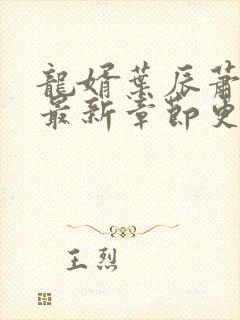 龍婿葉辰蕭
最新章節更
王烈